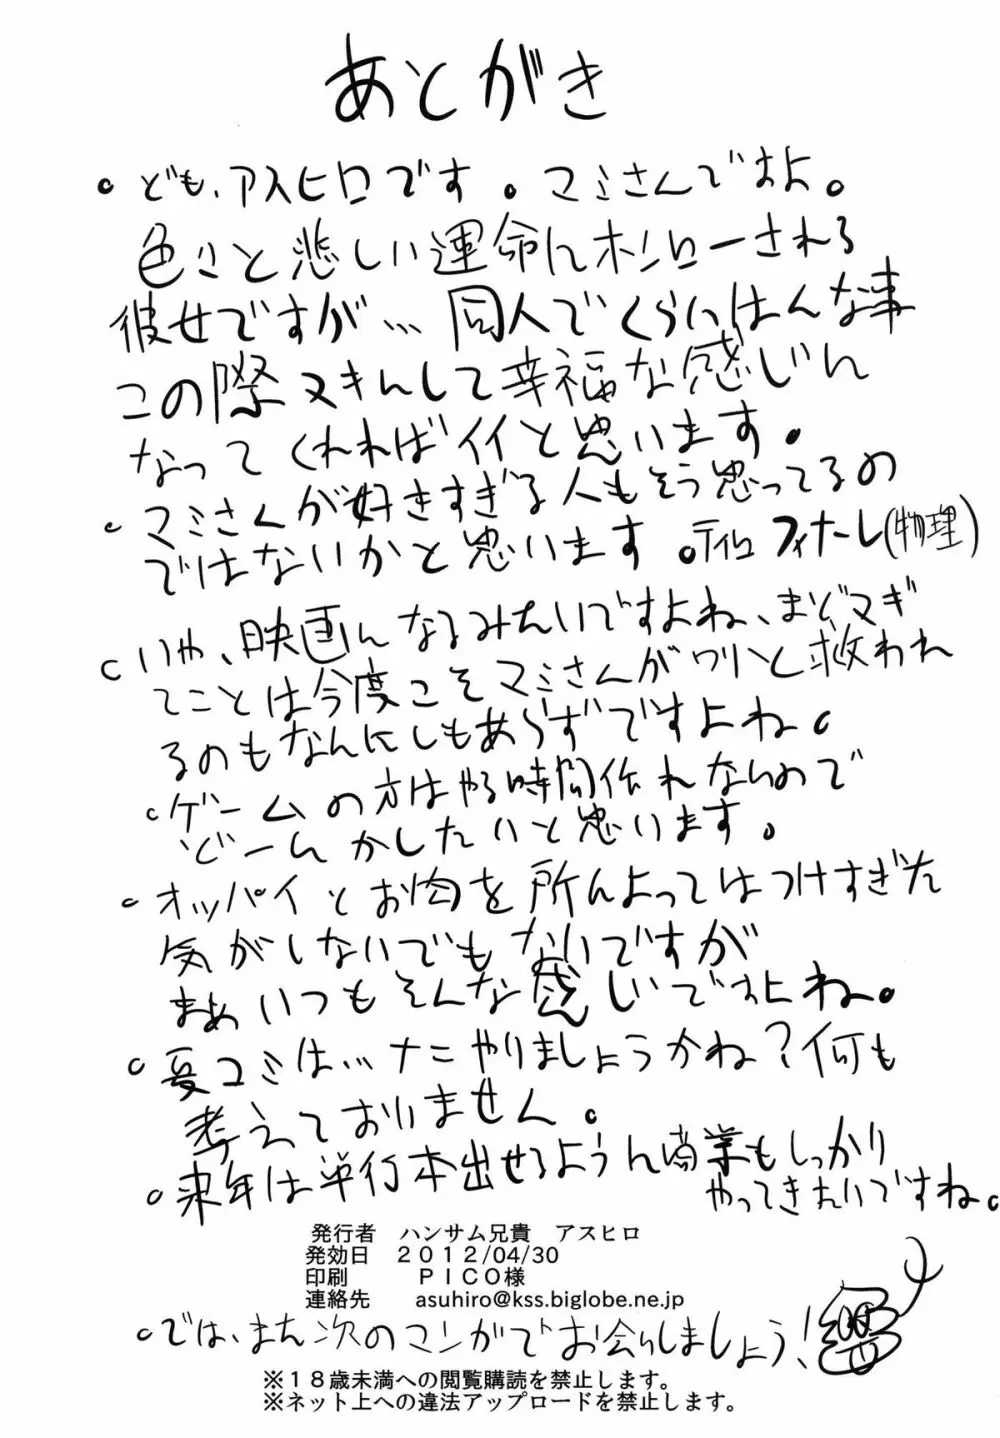 あとがき
。ども、アスヒロです。マミさんですよ。
色々と悲しい運命にホンローされる
彼女ですが…同人でくらいはんな事
この際ヌキにして幸福な感じに
なってくれればイイと思います。
。マミさんが好きすぎる人もそう思ってるの
ではないかと思います。ティロフィナーレ(物理)
。いや、映画になるみたいですよね、まどマギ
てことは今度こそマミさんがワリと救われ
るのもなんにしもあらずですよね。
。ゲームの方はやる時間作れないので
どーにかしたいと思います。
。オッパイとお肉を所によってはつけすぎた
気がしないでもないですが
まあいつもそんな感じですよね。
。夏コミは…ナニやりましょうかね?何も
考えておりません。
。来年は単行本出せるように商業もしっかり
やってきたいですね。
発行者 ハンサム兄貴 アスヒロ
発効日 2012/04/30
印刷 PICO様
連絡先 asuhiro@kss.biglobe.ne.jp
。では、また次のマンガでお会いしましょう!
※18歳未満への閲覧購読を禁止します。
※ネット上への違法アップロードを禁止します。